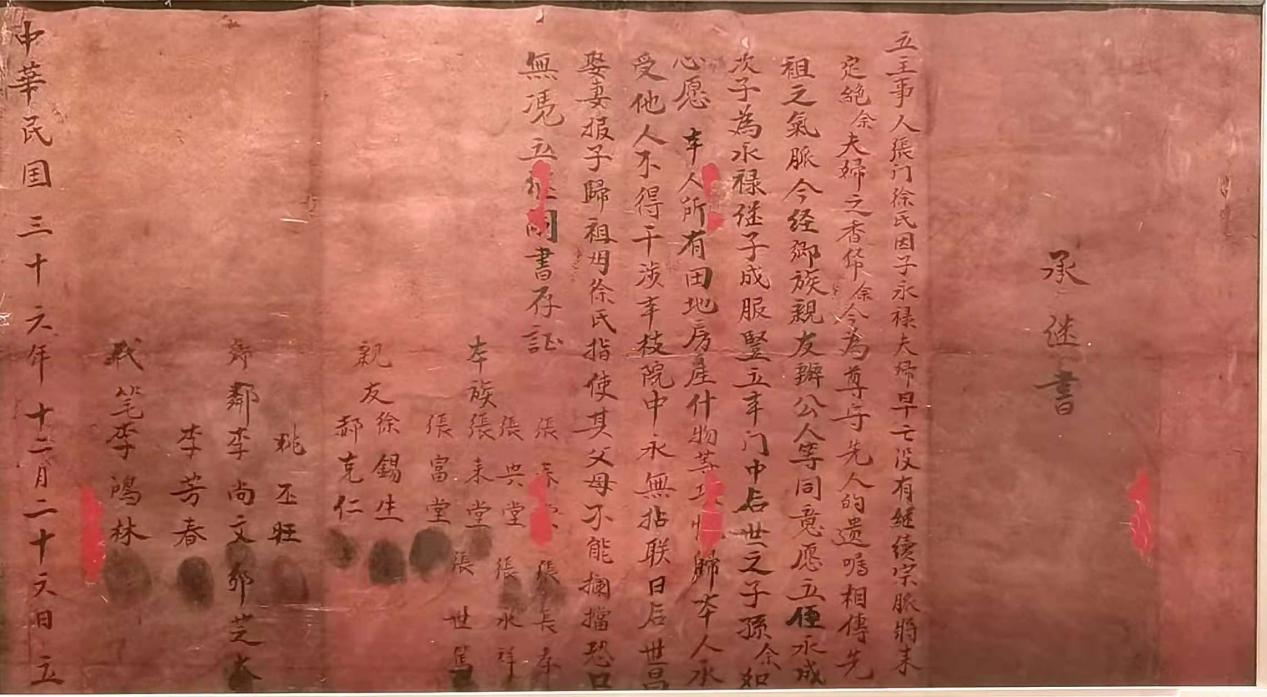 承继書
立主事人張门徐氏因子永禄夫婦早亡没有継續宗脈將来
定絶余夫婦之香火余今為尊与先人的遗嘱相傳先
祖之氣脈今経鄉族親友辦公人等同意愿立侄永成
次子為永禄继子成服豎立本门中后世之子孫余如
心愿本人所有田地房産什物等歸本人承
受他人不得干涉本枝院中永無拈联日后世昌
娶妻报子歸祖母徐氏指使其父母不能攔擋恐口
無凴立继書存証
本族張堂 張長春
張典堂 張永祥
張来堂 張世篤
張富堂
親友徐錫生
郝克仁
姚丕旺
鄉鄰李尚文 邻芝
李芳春
戥笔李鴻林
中華民国三十六年十二月二十六日立